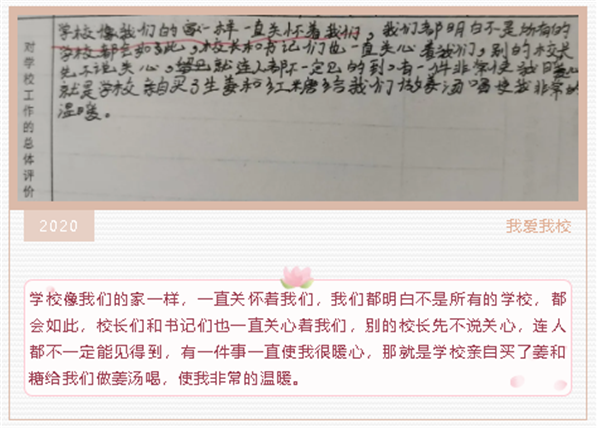 对学校工作的总体评价
学校像我们的家一样一直关怀着我们，我们都明白不是所有的
学校都会如此，校长和书记们也一直关心着我们，别的校长
先不说关心，就连人都不一定见的到。有一件非常使我暖心
就是学校亲自买了生姜和红糖给我们做姜汤喝使我非常的
温暖。
2020
我爱我校
学校像我们的家一样，一直关怀着我们，我们都明白不是所有的学校，都
会如此，校长们和书记们也一直关心着我们，别的校长先不说关心，连人
都不一定能见得到，有一件事一直使我很暖心，那就是学校亲自买了姜和
糖给我们做姜汤喝，使我非常的温暖。